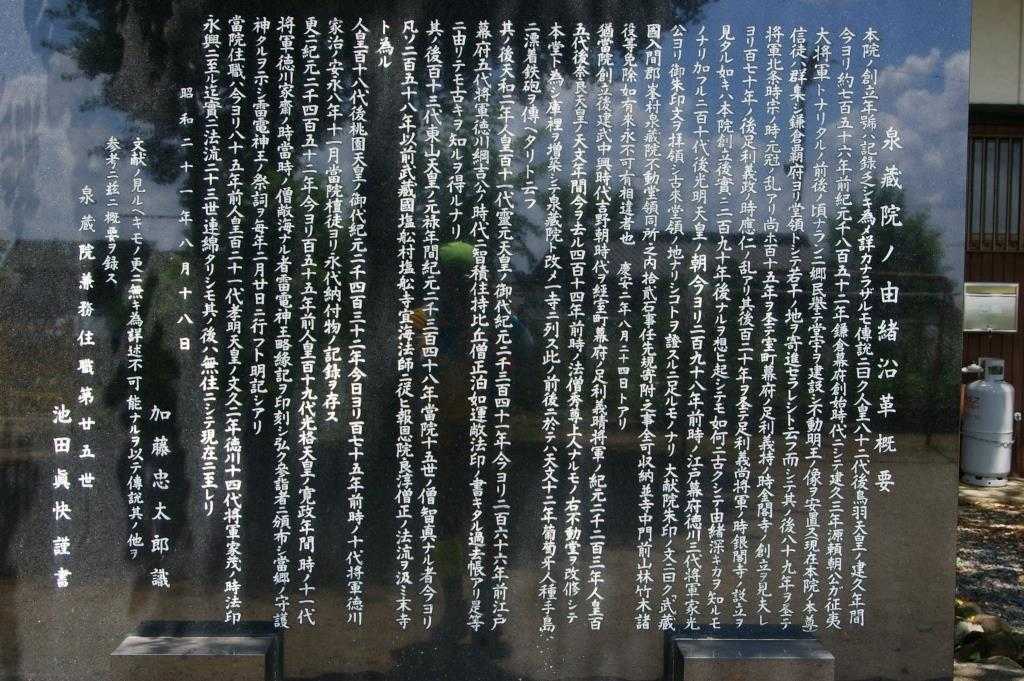 泉蔵院ノ由緒沿革概要
本院ノ創立年號ハ記録乏シキ為メ詳カナラザルモ傳説ニ曰ク人皇八十二代後鳥羽天皇ノ建久年間
今ヨリ約七百五十六年前紀元千八百五十二年鎌倉幕府創始時代ニシテ建久三年源頼朝公ガ征夷
大将軍トナリタルノ前後ノ頃ナランニ郷民擧ニ堂宇ヲ建設シ不動明王ノ像ヲ安置
信徒ハ群集シ鎌倉覇府ヨリ堂領トシテ若干ノ地ヲ寄進セラレシト云フ而シテ其ノ後八十九年ヲ
将軍北条時宗ノ時元冦ノ乱アリ尚ホ百十五年ヲ
ヨリ百七十年ノ後足利義政ノ時應仁ノ乱アリ其後百二十年ヲ
見タル如キハ本院創立後實ニ二百九十年後ナルヲ想ヒ起シテモ如何ニ古クシテ由緒深キカヲ知ルモ
ノナリ加フルニ二百十代後光明天皇ノ朝今ヨリ二百九十八年前時ノ江戸幕府徳川三代将軍家光
公ヨリ御朱印文ヲ拝領シ古来堂領ノ地ナリシコトヲ證スルニ足ルモノナリ大獻院朱印ノ文ニ曰ク武蔵
國入間郡峯村泉蔵院不動堂領同所之内拾貳石事任先規寄附之訖全可収納並寺中門前山林竹木諸
役等免除如有来永不可有相違者也 慶安二年八月二十四日トアリ
猶當院創立後建武中興時代吉野朝時代ヲ経室町幕府ノ足利義晴将軍ノ紀元二千二百三年人皇百
五代後奈良天皇ノ天文年間今ヲ去ル四百十四年前時ノ法僧
本堂ト為シ庫裡ヲ増築シテ泉蔵院ト改メ一寺ニ列ス此ノ前後ニ於テハ天文十二年葡萄牙人種子島
ニ漂着鉄砲ヲ傳ヘタリト云フ
其ノ後天和二年人皇百十一代霊元天皇ノ御代紀元二千三百四十一年今ヨリ二百六十六年前江戸
幕府五代将軍徳川綱吉公ノ時代ニ智積住持比丘僧正泊如運敞法印ノ書キタル過去帳アリ是等
ニ由リテモ古キヲ知ルヲ得ルナリ
其ノ後百十三代東山天皇ノ元禄年間紀元二千三百四十八年當院十五世ノ僧智眞ナル者今ヨリ
凡ソ二百五十八年以前武蔵國塩舩村塩舩寺宣海法師ニ従ヒ報恩院良淳僧正ノ法流ヲ汲ミ末寺
ト為ル
人皇百十八代後桃園天皇ノ御代紀元二千四百三十二年今日ヨリ百七十五年前時ノ十代将軍徳川
家治ノ安永八年十一月當院檀徒ヨリ永代納付物ノ記録ヲ存ス
更ニ紀元二千四百五十二年今ヨリ百五十五年前人皇百十九代光格天皇ノ寛政年間時ノ十一代
将軍徳川家齋ノ時當時ノ僧敞海ナル者雷電神王略縁記ヲ印刻シ弘ク参詣者ニ頒布シ當郷ノ守護
神タルヲ示シ雷電神王ノ祭詞ヲ毎年二月廿日ニ行フト明記シアリ
當院住職ハ今ヨリ八十五年前人皇百二十一代孝明天皇ノ文久二年徳川十四代将軍家茂ノ時法印
永興ニ至ル迄實ニ法流二十三世連綿タリシモ其ノ後ハ無住ニシテ現在ニ至レリ
昭和二十一年八月十八日
文献ノ見ルヘキモノ更ニ無キ為詳述不可能ナルヲ以テ傳説其ノ他ヲ
参考ニ玆ニ概要ヲ録ス
加藤忠太郎識
泉蔵院兼務住職第廿五世
池田眞快謹書